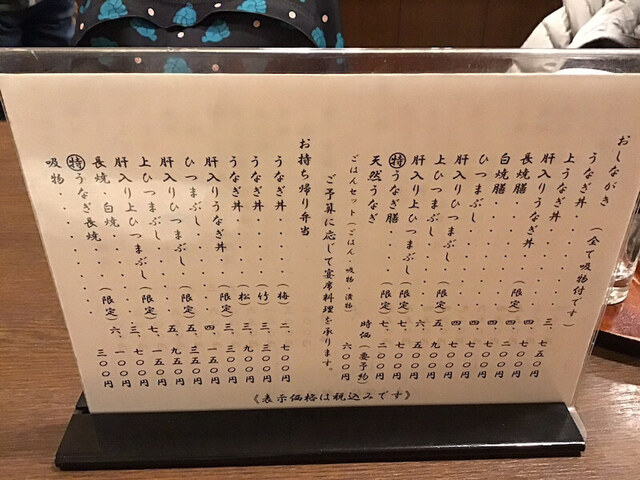 おしながき (全て吸物付です)
うなぎ丼 三、七五〇円
上うなぎ丼 四、七〇〇円
肝入りうなぎ丼 四、二〇〇円
長焼膳 (限定) 四、七〇〇円
白焼膳 四、七〇〇円
ひつまぶし 四、 〇〇円
肝入りひつまぶし (限定)
上ひつまぶし 五、
肝入り上ひつまぶし (限定) 六、五〇〇円
㊕うなぎ膳 (限定) 七、二〇〇円
天然うなぎ 時価(要予約)
ごはんセット(ごはん・吸物・漬物) 六〇〇円
ご予算に応じて宴席料理を承ります。
お持ち帰り弁当
うなぎ丼 (梅) 二、七〇〇円
うなぎ丼 (竹) 三、 〇〇円
うなぎ丼 (松) 三、九〇〇円
肝入りうなぎ丼 (限定) 三、三〇〇円
ひつまぶし 四、一五〇円
肝入りひつまぶし (限定) 五、三五〇円
上ひつまぶし 五、九五〇円
肝入り上ひつまぶし (限定) 七、一五〇円
長焼・白焼 三、七〇〇円
㊕うなぎ長焼 (限定) 六、一〇〇円
吸物 三〇〇円
《表示価格は税込みです》